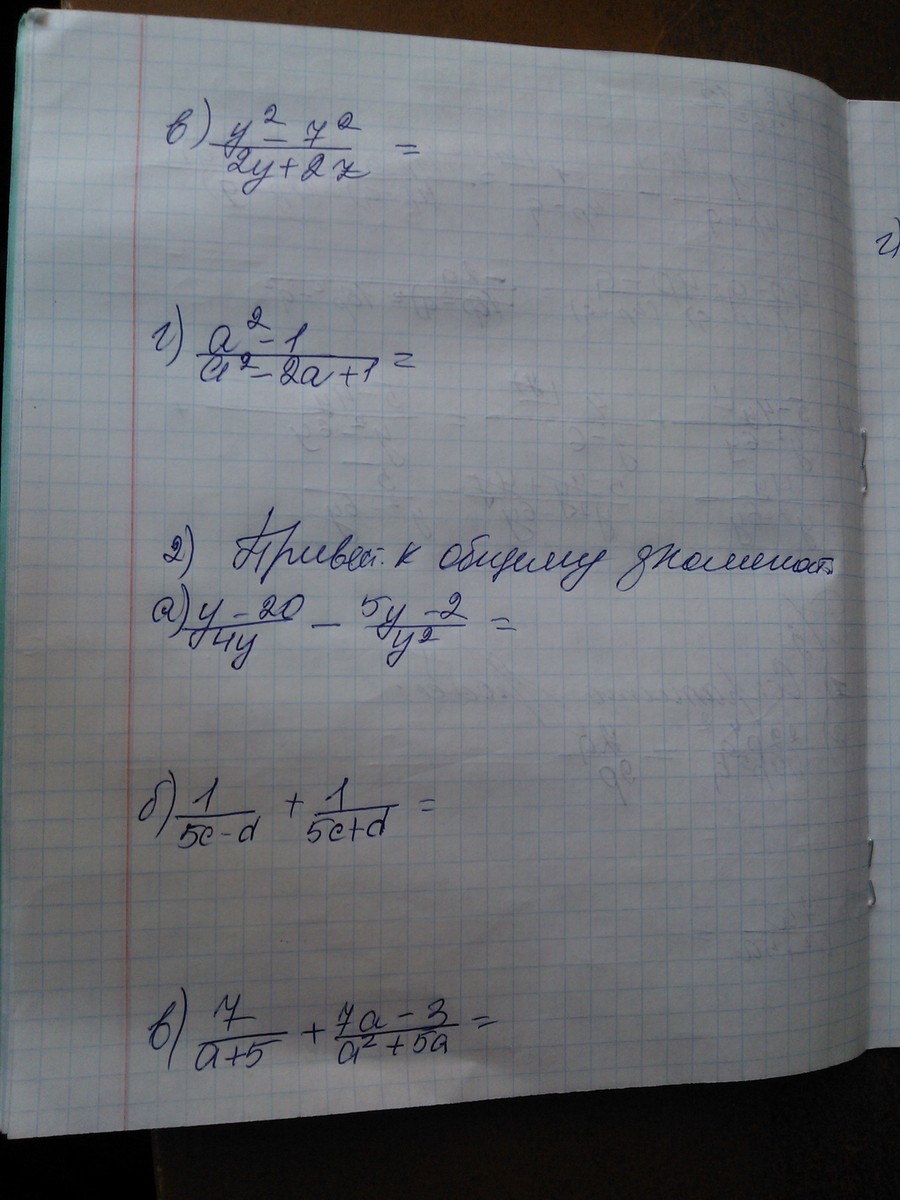 в) (y² - 7²)/(2y + 2z) =
г) (a² - 1)/(a² - 2a + 1) =
2) Привест. к общему знаменат
а) (y - 20)/(4y) - (5y - 2)/(y²) =
б) 1/(5c - d) + 1/(5c + d) =
в) 7/(a + 5) + (7a - 3)/(a² + 5a) =
г)